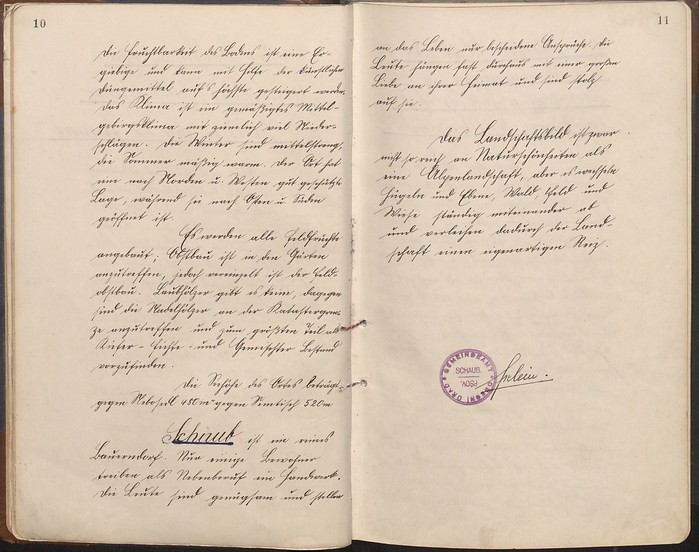 10
Die Fruchtbarkeit des Bodens ist eine Er-
giebige und kann mit Hilfe der künstlichen
Düngemittel auf's höchste gesteigert werden.
Das Klima ist ein gemäßigtes Mittel-
gebirgsklima mit ziemlich viel Nieder-
schlägen. Die Winter sind mittelstreng,
die Sommer mäßig warm. Der Ort hat
eine nach Norden u. Westen gut geschützte
Lage, während sie nach Osten u. Süden
geöffnet ist.
Es werden alle Feldfrüchte
angebaut; Obstbau ist in den Gärten
anzutreffen, jedoch vereinzelt ist der Feld-
obstbau. Laubhölzer gibt es keine, dagegen
sind die Nadelhölzer an der Katastergren-
ze anzutreffen und zum größten Teil als
Kiefer- Fichte- und Gemischter Bestand
vorzufinden.
Die Seehöhe des Ortes beträgt
gegen Nebosedl 450 m gegen Semtisch 520 m
Schaub ist ein reines
Bauerndorf. Nur einige Bewohner
treiben als Nebenberuf ein Handwerk.
Die Leute sind genügsam und stellen
11
an das Leben nur bescheidene Ansprüche. Die
Leute hängen fast durchaus mit einer großen
Liebe an ihrer Heimat und sind stolz
auf sie.
Das Landschaftsbild ist zwar
nicht so reich an Naturschönheiten als
eine Alpenlandschaft, aber es wechseln
Hügeln und Ebene, Wald Feld und
Wiese ständig miteinander ab
und verleihen dadurch der Land-
schaft einen eigenartigen Reiz.
GEMEINDEAMT
SCHAUB.
POŽOV.
OBECNÍ ÚŘAD